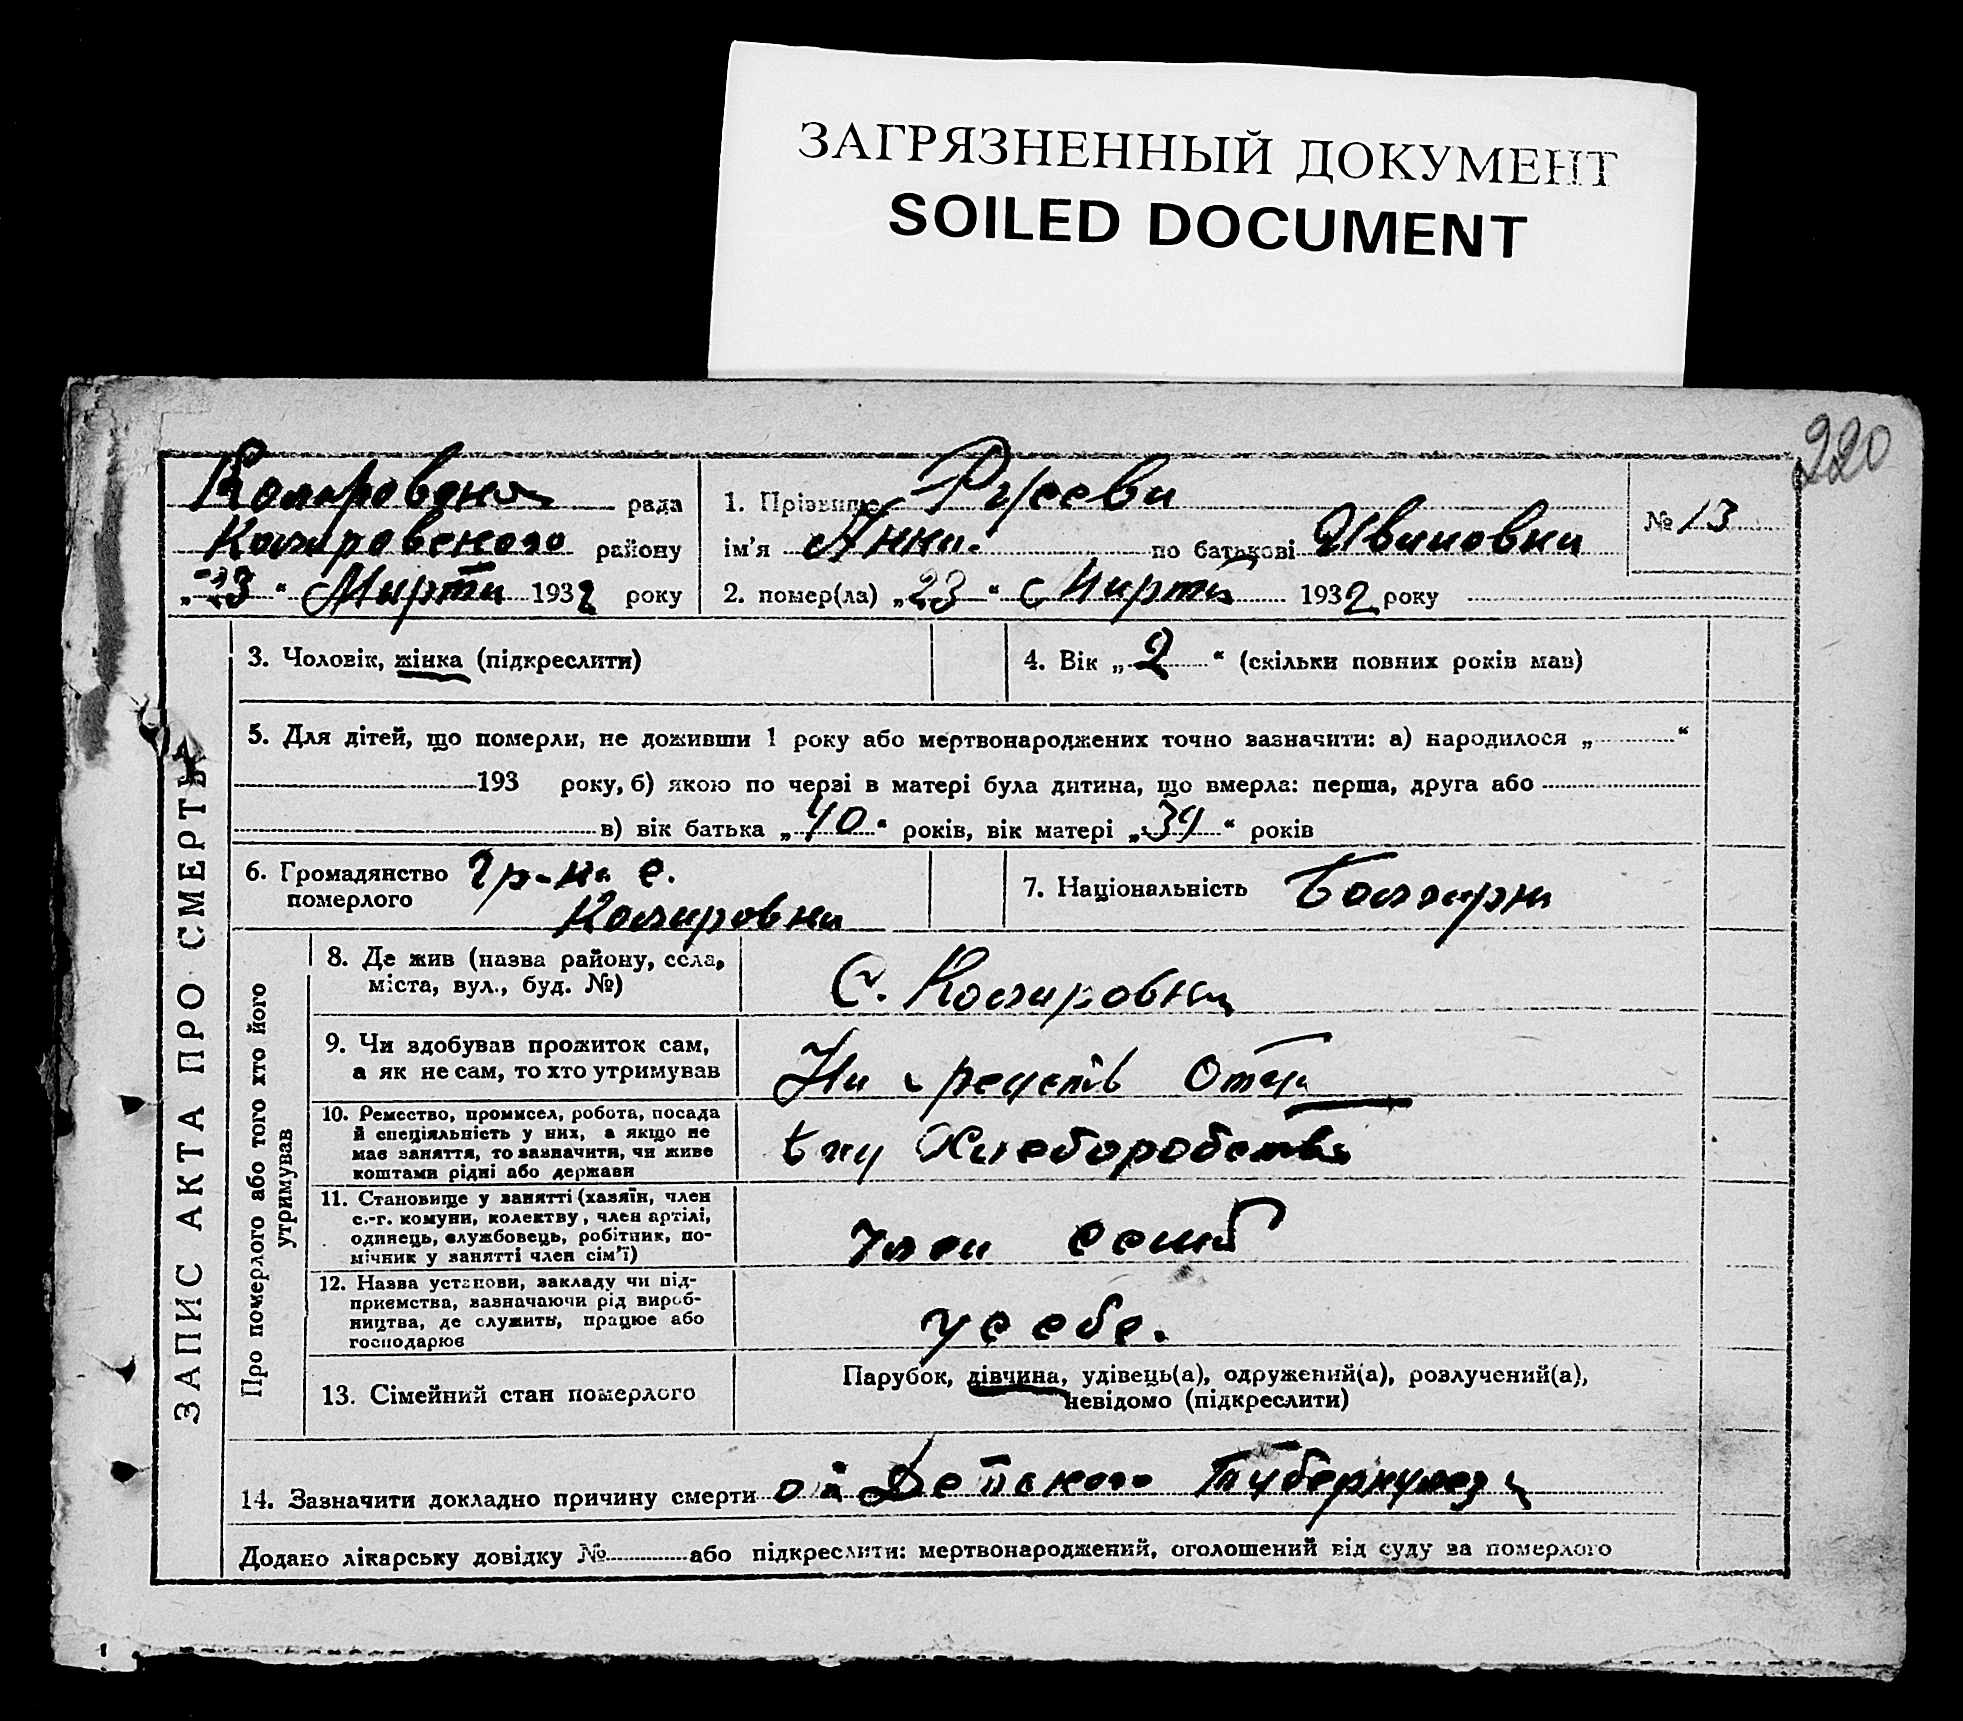 ЗАГРЯЗНЕННЫЙ ДОКУМЕНТ
SOILED DOCUMENT
220
рада
Коларовского району
„23“ Марта 1932 року
1. Прізвище
ім'я Анна. по батькові Ивановна
2. помер(ла) „23“ Марта 1932 року
№ 13
ЗАПИС АКТА ПРО СМЕРТЬ
3. Чоловік, жінка (підкреслити)
4. Вік „2“ (скільки повних років мав)
5. Для дітей, що померли, не доживши 1 року або мертвонароджених точно зазначити: а) народилося „ “
193 року, б) якою по черзі в матері була дитина, що вмерла: перша, друга або
в) вік батька „40“ років, вік матері „39“ років
6. Громадянство гр-ка с.
померлого Коларовка
7. Національність Болгарка
Про померлого або того хто його
утримував
8. Де жив (назва району, села,
міста, вул., буд. №)
С. Коларовка
9. Чи здобував прожиток сам,
а як не сам, то хто утримував
На отца
10. Ремество, промисел, робота, посада
й спеціяльність у них, а якщо не
має заняття, то зазначити, чи живе
коштами рідні або держави
Хлеборобства
11. Становище у занятті (хазяїн, член
с.-г. комуни, колективу, член артілі,
одинець, службовець, робітник, по-
мічник у занятті член сім'ї)
член семб
12. Назва установи, закладу чи під-
приємства, зазначаючи рід вироб-
ництва, де служить, працює або
господарює
у себе.
13. Сімейний стан померлого
Парубок, дівчина, удівець(а), одружений(а), розлучений(а),
невідомо (підкреслити)
14. Зазначити докладно причину смерти от Детского Туберкулеза
Додано лікарську довідку № або підкреслити: мертвонароджений, оголошений від суду за померлого